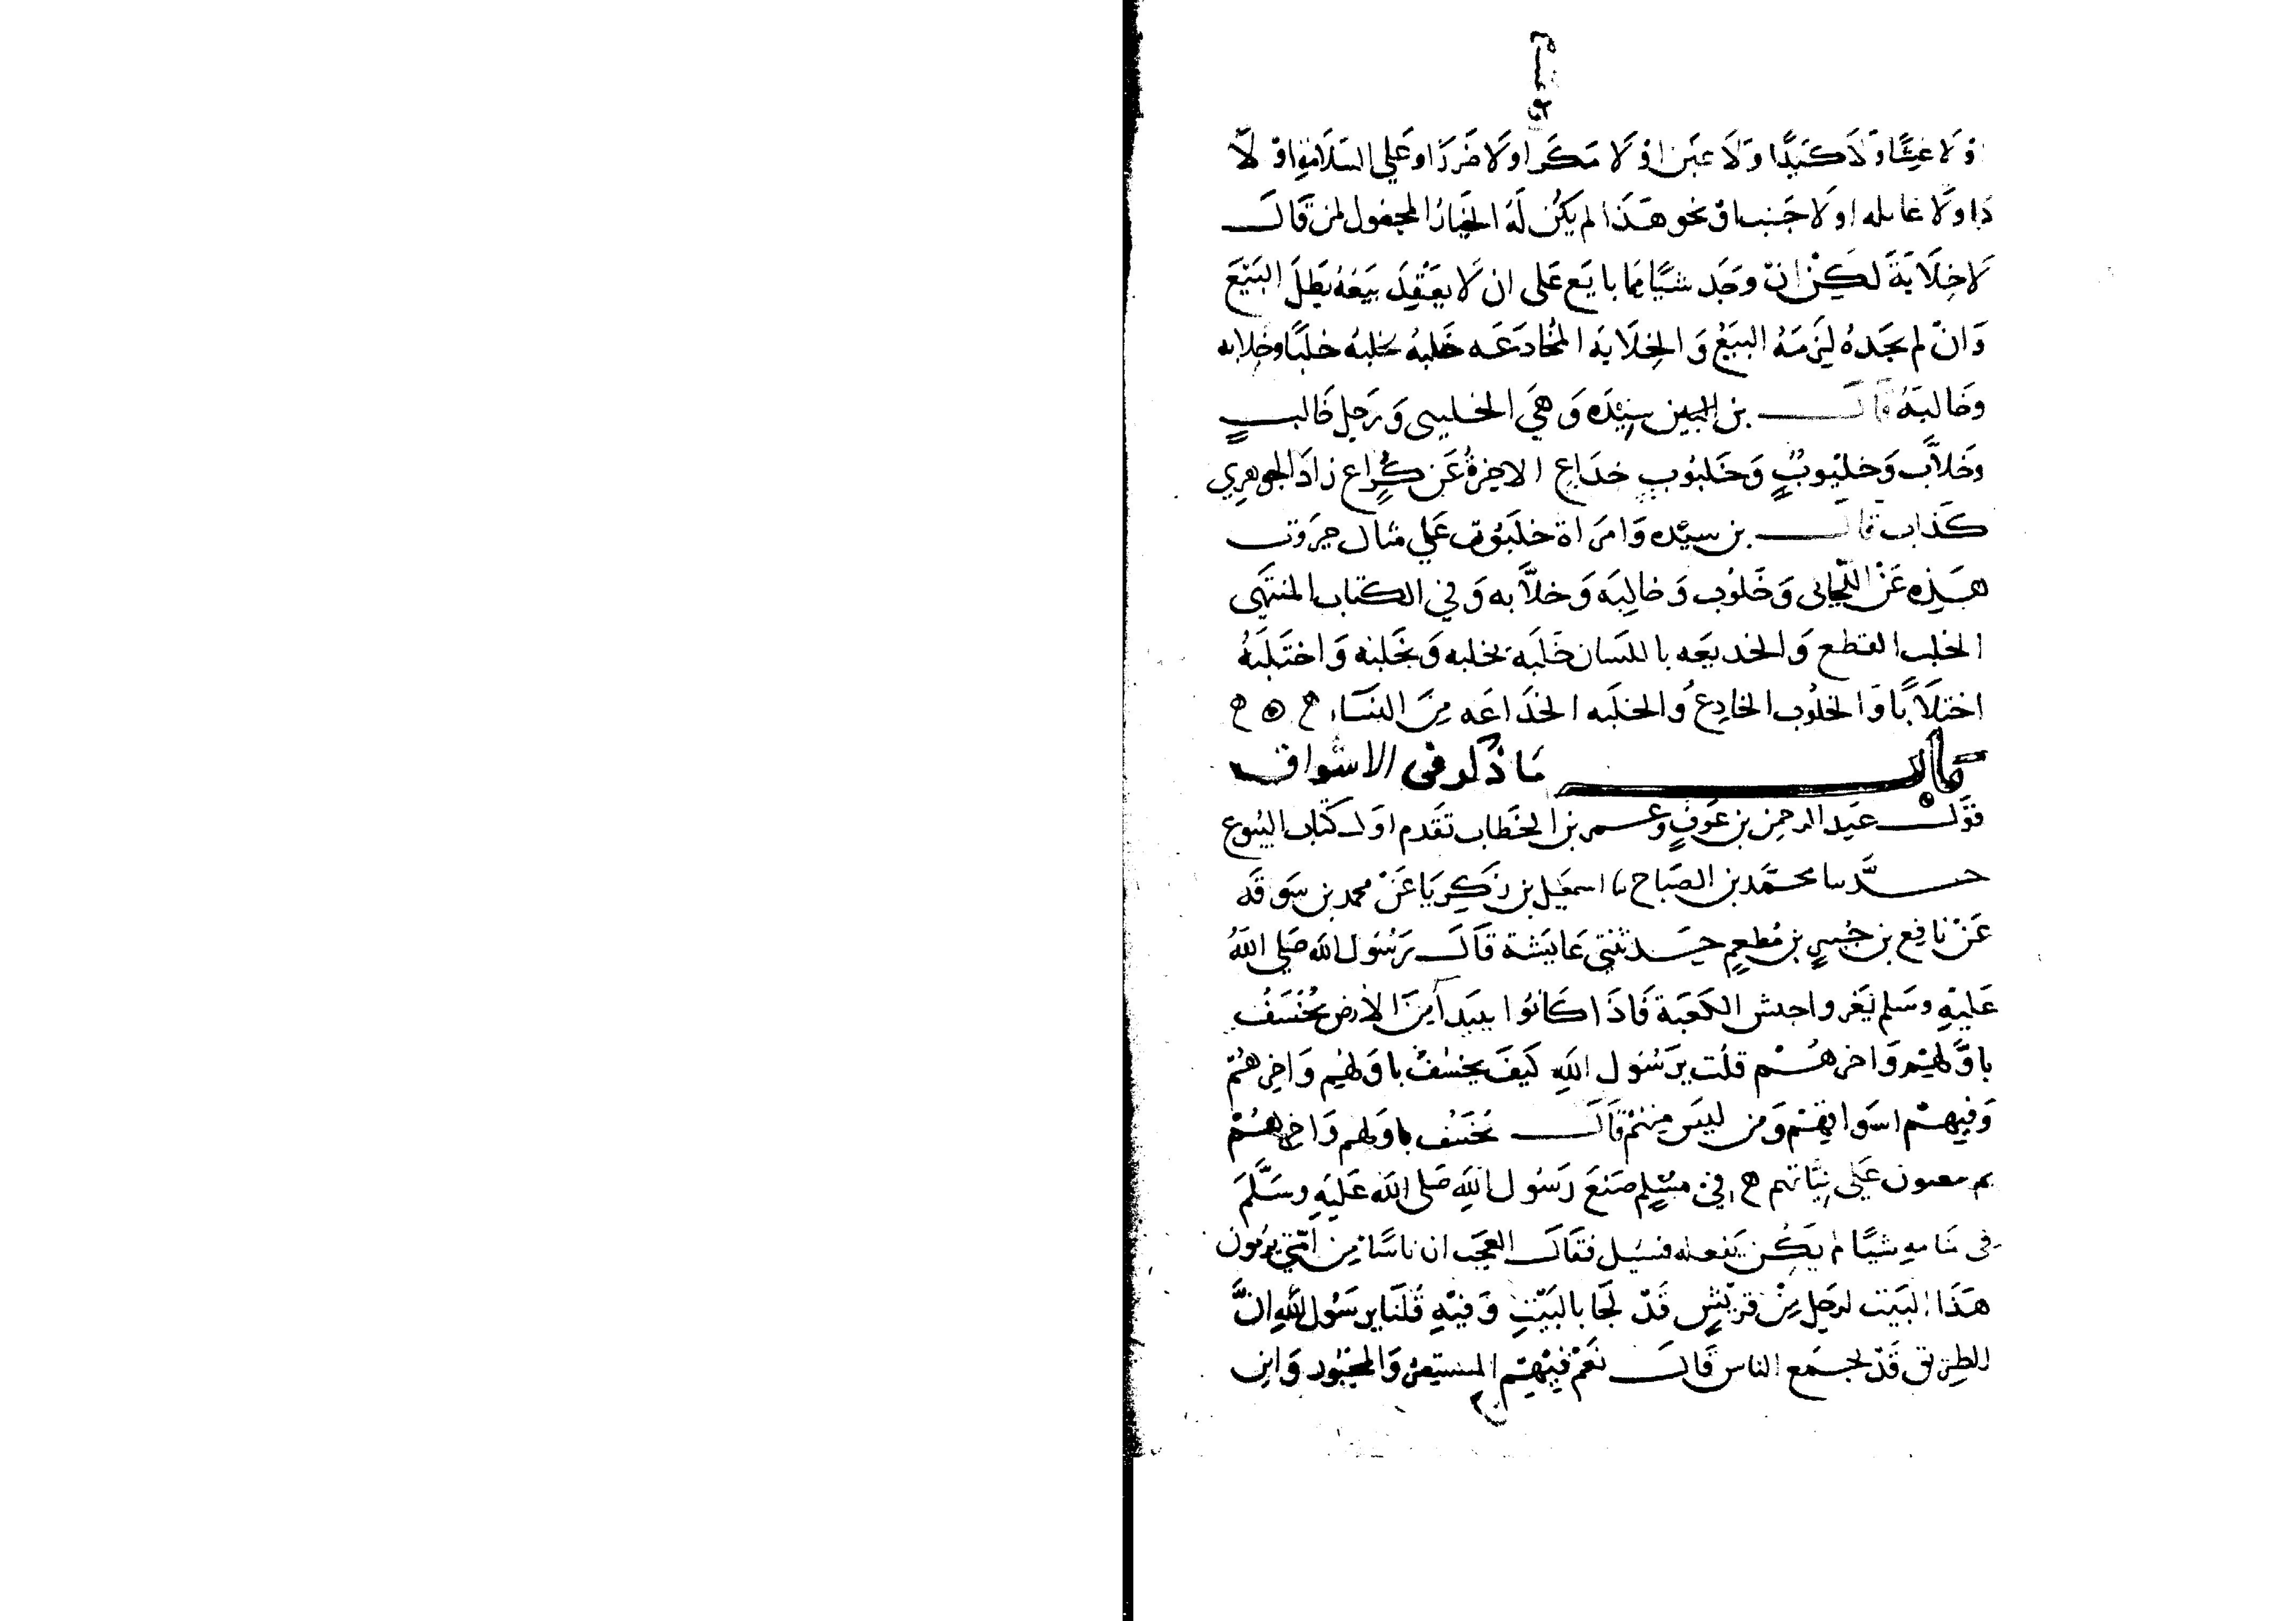 او لا غشا ولا كيدا ولا غبن او لا مكرا ولا ضررا او على السلامة او لا
دا ولا غايله او لا خبث او نحو هذا لم يكن له الخيار المجعول لمن قال
لا خلابة لكن ان وجد شيا مما بايع على ان لا يعقد بيعه بطل البيع
وان لم يجده لزمه البيع والخلابه المخادعه خلبه يخلبه خلبا وخلابه
وخالبه قال بن سيده وهي الخليبى ورجل خالب
وخلاب وخلبوت وخلبوب خداع الاخيرة عن كراع زاد الجوهري
كذاب قال بن سيده وامراة خلبوت على مثال جبروت
هذه عن اللحياني وخلوب وخالبه وخلابه وفي الكتاب المنتهى
الخلب القطع والخديعه باللسان خلبه يخلبه ويخلبه واختلبه
اختلابا والخلوب الخادع والخلبه الخداعه من النساء
باب ما ذكر في الاسواق
قول عبد الرحمن بن عوف وعمر بن الخطاب تقدم اول كتاب البيوع
حدثنا محمد بن الصباح نا اسمعيل بن زكريا عن محمد بن سوقه
عن نافع بن جبير بن مطعم حدثتني عايشة قال رسول الله صلى الله
عليه وسلم يغزوا جيش الكعبة فاذا كانوا ببيدا من الارض يخسف
باولهم واخرهم قلت يرسول الله كيف يخسف باولهم واخرهم
وفيهم اسواقهم ومن ليس منهم قال يخسف باولهم واخرهم
ثم يبعثون على نياتهم في مسلم صنع رسول الله صلى الله عليه وسلم
في منامه شيا لم يكن يفعله فسيل فقال العجب ان ناسا من امتي يومون
هذا البيت لرجل من قريش قد لجا بالبيت وفيه قلنا يرسول الله ان
الطريق قد تجمع الناس قال نعم فيهم المستبصر والمجبور وابن